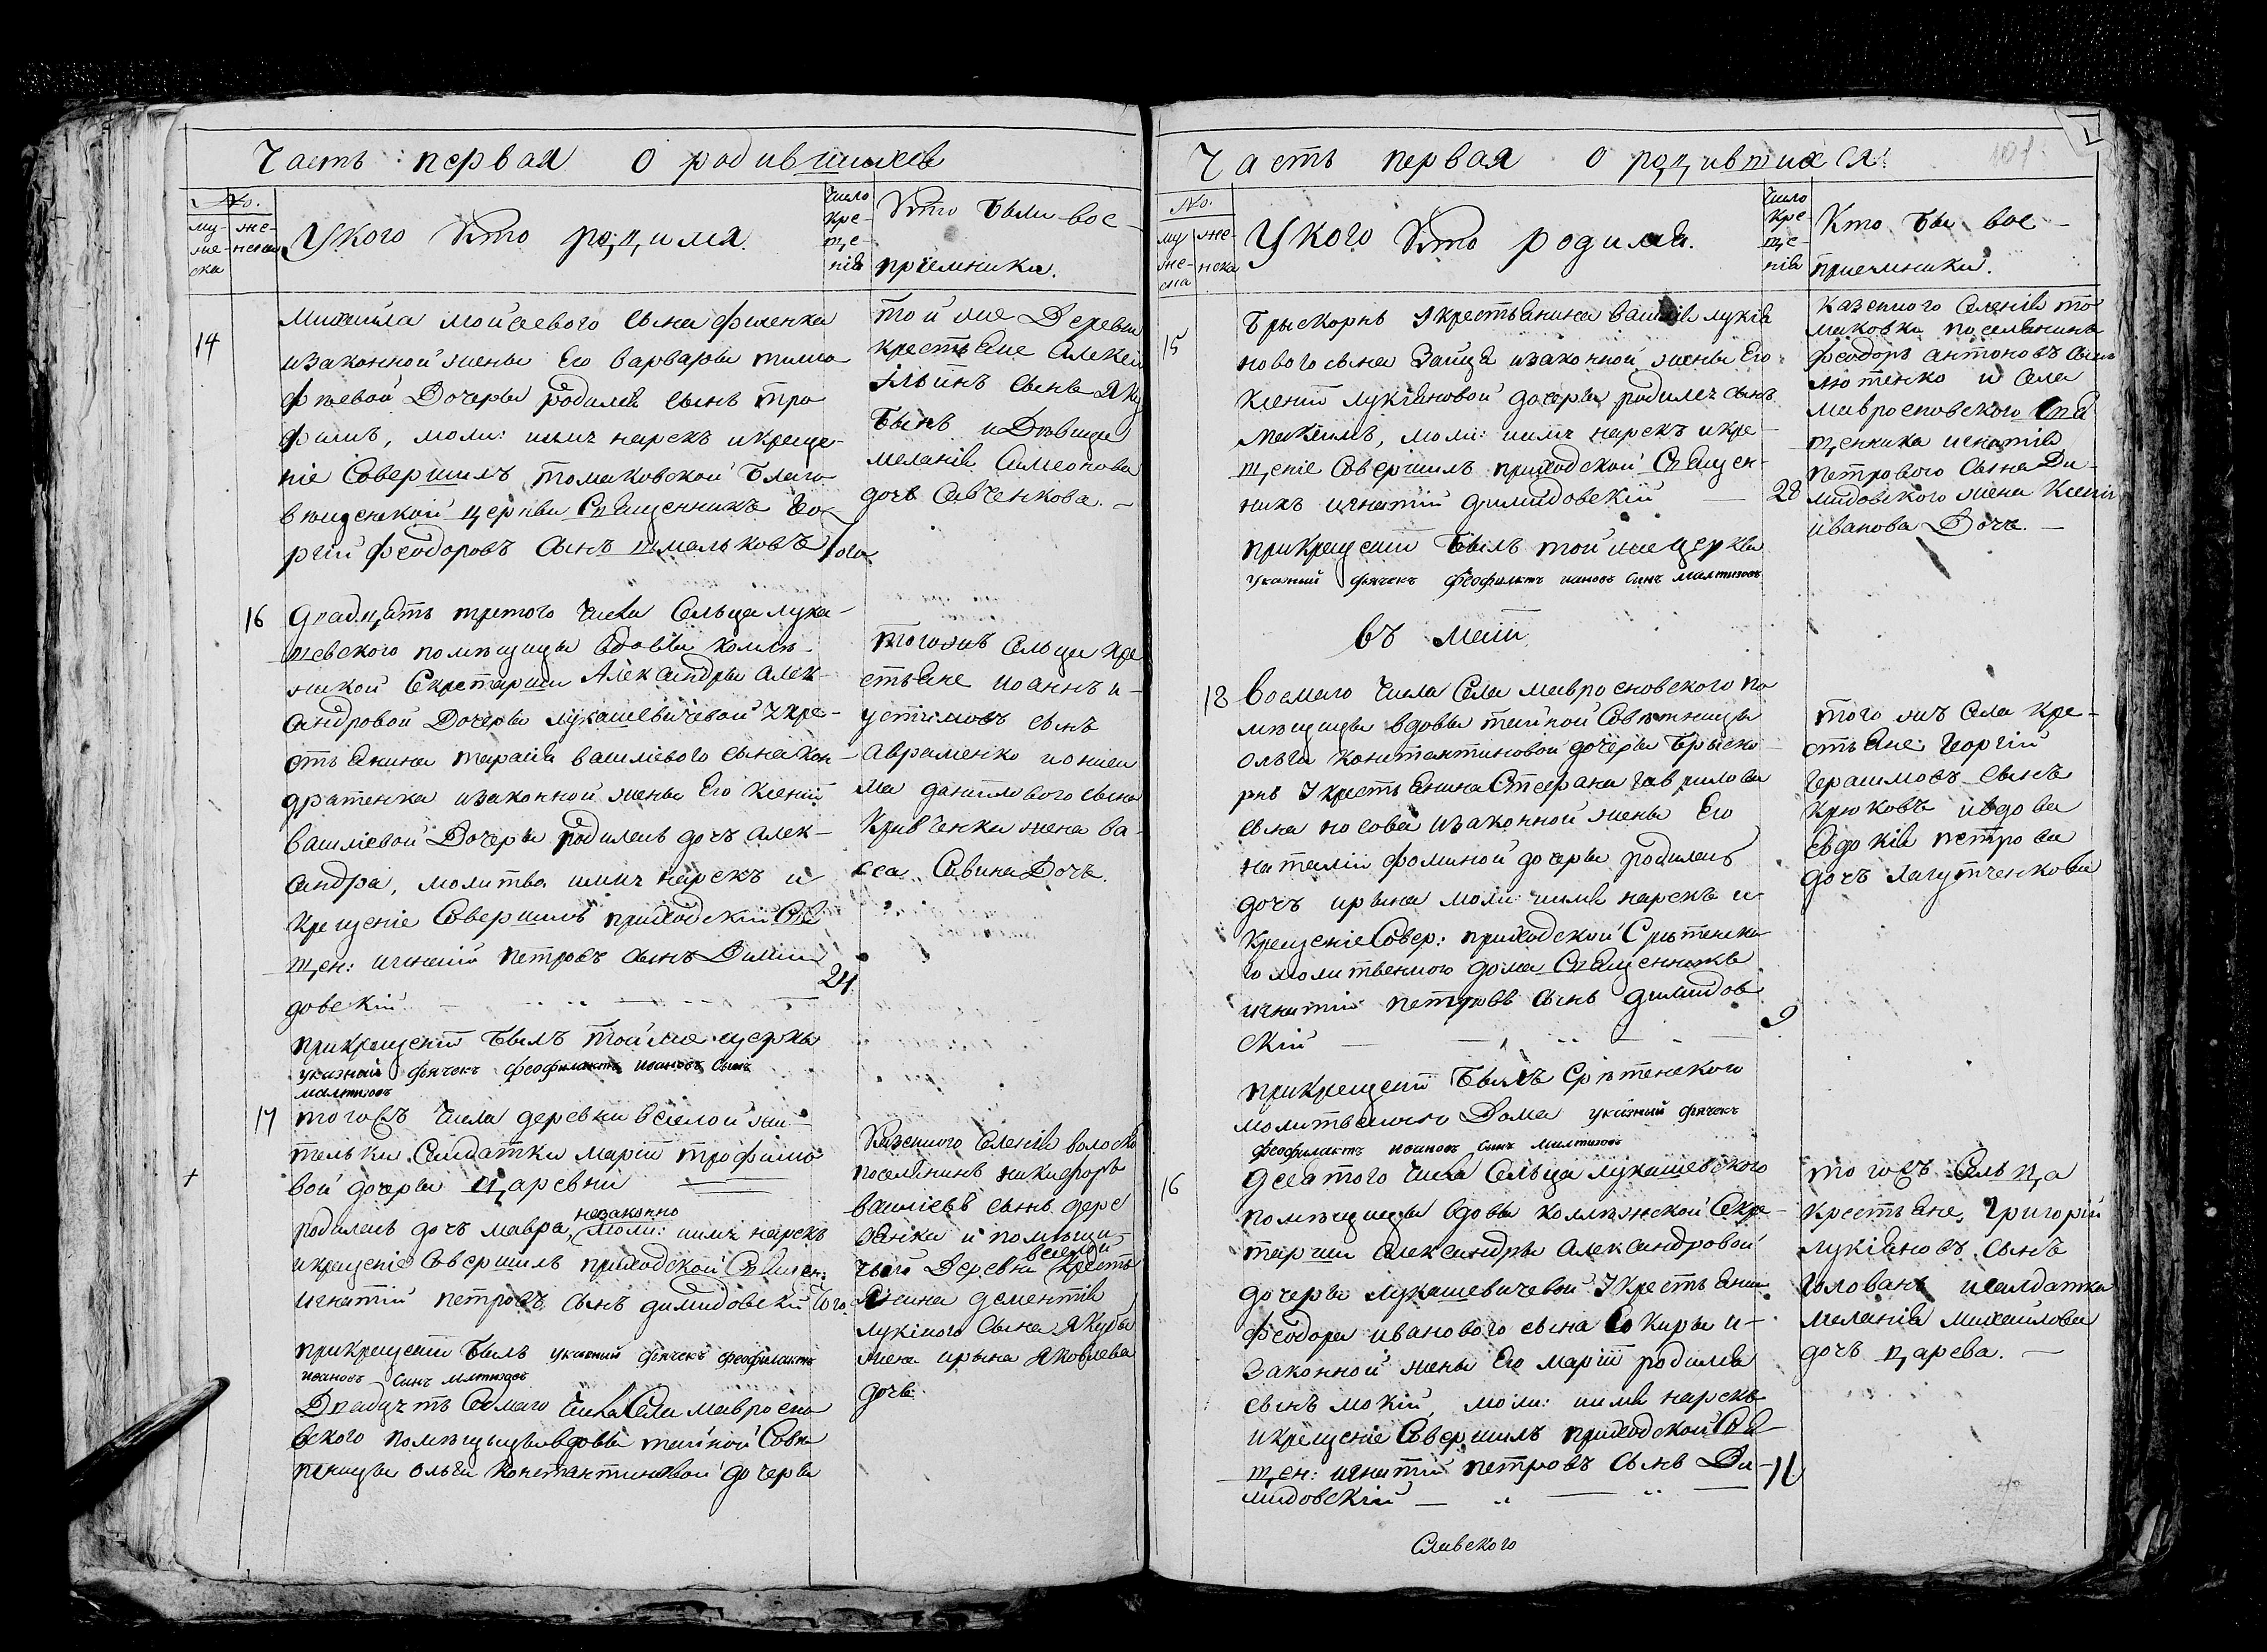 Часть первая о родившихся
№.
му-
же-
ска
же-
нска
У кого кто родился.
Число
кре-
ще-
нія
Кто были вос-
пріемники.
14
Михаила Мойсеевого сына Филенка
и законной жены Его Варвары Тимо-
феевой Дочеры родился сынъ Тро-
фимъ, моли: и имя нарекъ и креще-
ніе Совершилъ Томаковской Благо-
вещенской церквы Священникъ Гео-
ргій Феодоровъ Сынъ Шмальковъ
той же Деревни
крестьяне Алексей
Ильинъ сынъ Яку
Бынъ и Девица
меланія Симеонова
дочь Савченкова. —
16
Двадцять третого числа Сельца Лука-
шевского помещицы вдовы колле-
жской Секретарши Александры Алек-
сандровой Дочеры Лукашевичевой У кре-
стьянина Тарасія Василіевого сына Кон-
дратенка и законной жены Его Ксеніи
Василіевой Дочеры родилась дочъ Алек-
сандра, молитва и имя нарекъ и
крещеніе Совершилъ приходскій Свя-
щен: игнатій Петровъ сынъ Дими
довскій
24
при крещеніи былъ той же церквы
указный дячекъ Феофилактъ Ивановъ Сынъ
тогожъ Сельца кре
стьяне Иоаннъ и-
устиновъ сынъ
Авраменко и они
ма даниилового сына
Кривченка жена Ва-
сса Савина Дочъ.
17
тогожъ числа деревни веселой жи-
тельки Салдатки Маріи Трофимо-
вой дочеры Царевни
незаконно
родилась дочъ мавра, моли: и имя нарекъ
и крещеніе Совершилъ приходской Священ:
Игнатій Петровъ Сынъ димидовскій
при крещеніи былъ указный дячекъ Феофилактъ
Ивановъ Сынъ
Казенного Селенія
поселянинъ никифоръ
василіевъ сынъ дере
вянка и помещи
веселой
чьей Деревни крестья
янина дементія
лукіного Сына Якубы
жена ирына Яковлева
дочь.
Двадцять Седмаго числа Села Мавросно
вского помещыцы вдовы тайной Сове
тницы Ольги Константиновой дочеры
Часть первая о родившихся.
101.
№.
му
же-
ска
же-
нска
У кого кто родился.
Число
кре-
ще-
нія
Кто бы вос-
приемники.
15
Брыскорнъ У крестьянина Василія лукія
нового сына Зайца и законной жены Его
Ксеніи Лукіяновой дочеры родился сынъ
Максимъ, моли: и имя нарекъ и кре-
щеніе Совершилъ приходской Священ-
никъ игнатій димидовскій
28
при крещеніи былъ той же церквы
указный дячекъ Феофилактъ Ивановъ Синъ
Казенного Селенія то
маковки поселянинъ
Феодоръ антоновъ Сынъ
лютенко и Села
Мавросновского Свя
щенника игнатія
Петрового Сына Ди-
мидовского жена Ксенія
иванова Дочь. —
въ маіи
18
Восмаго числа Села Мавросновского по
мещицы вдовы тайной Советницы
Ольги Константиновой дочеры Брыско-
рнъ У крестьянина Стефана Гаврилова
сына носова и законной жены Его
наталіи Фоминой дочеры родилась
дочъ ирына моли: и имя нарекъ и
крещеніе Совер: приходской Сретенско-
го молитвенного дома Священникъ
игнатій Петровъ сынъ димидов
скій
9
при крещеніи былъ Сретенского
молитвенного Дома указный дячекъ
Феофилактъ Ивановъ Синъ
того жъ Села кре-
стьяне Георгій
Герасимовъ сынъ
Крюковъ и вдова
Евдокія Петрова
дочъ Лагутченкова
16
десятого числа Сельца Лукашевского
помещицы вдовы коллежской Секре-
тарши Александры Александровой
дочеры Лукашевичевой У крестьянина
Феодора иванового сына Сокиры и-
законной жены Его Маріи родился
сынъ мокій, моли: и имя нарекъ
и крещеніе Совершилъ приходской Свя-
щен: игнатій Петровъ Сынъ Ди-
мидовскій
11
тогожъ Сельца
Крестьяне, Григорій
лукіановъ сынъ
Голованъ и салдатка
меланія михайлова
дочъ царева. —
Славского